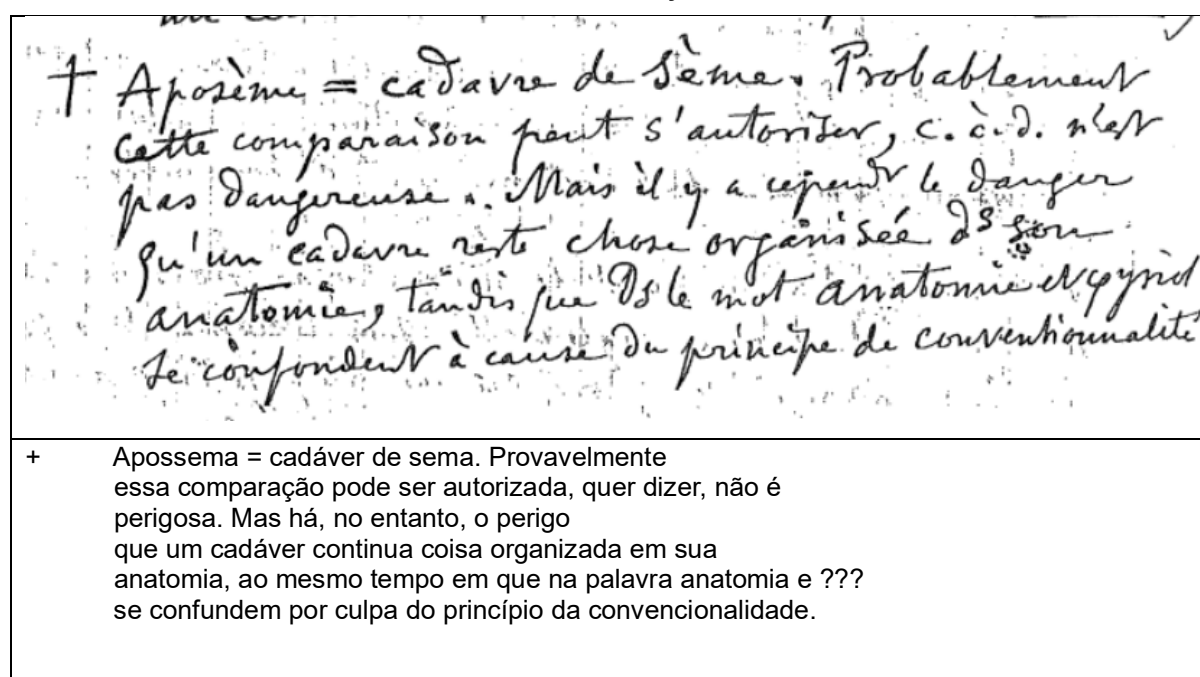 + Aposème = cadavre de Sème. Probablement
cette comparaison peut s'autoriser, c. à. d. n'est
pas dangereuse. Mais il y a cepend^t le danger
qu'un cadavre reste chose organisée d^s son
anatomie, tandis que ds le mot anatomie et
se confondent à cause du principe de conventionnalité
+ Apossema = cadáver de sema. Provavelmente
essa comparação pode ser autorizada, quer dizer, não é
perigosa. Mas há, no entanto, o perigo
que um cadáver continua coisa organizada em sua
anatomia, ao mesmo tempo em que na palavra anatomia e ???
se confundem por culpa do princípio da convencionalidade.